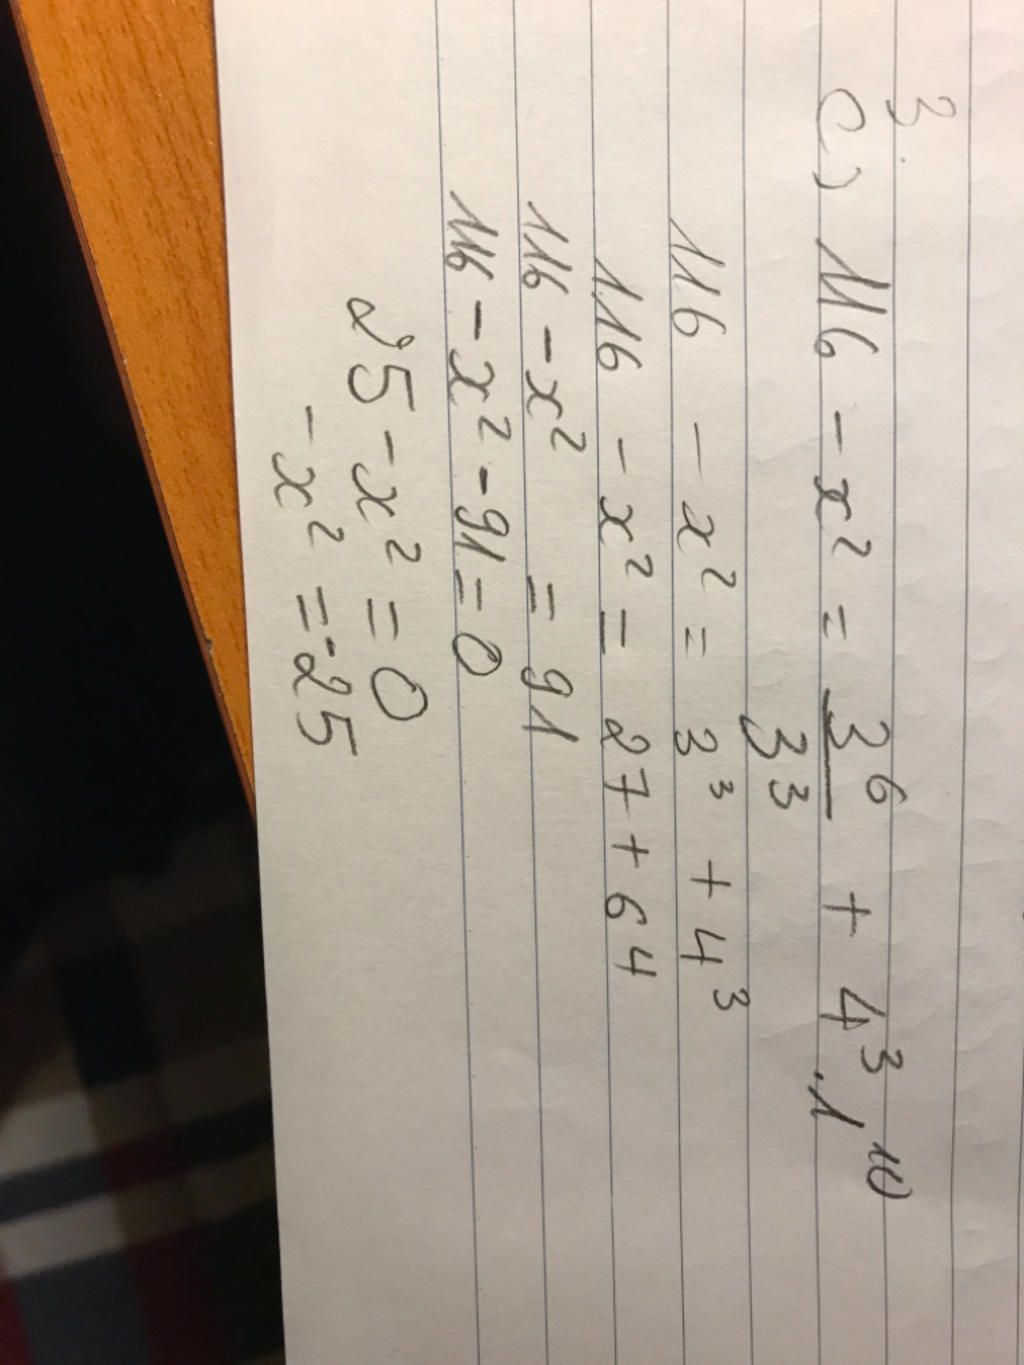 3.
c) 116 - x² = 3⁶/3³ + 4³ . 1¹⁰
116 - x² = 3³ + 4³
116 - x² = 27 + 64
116 - x² = 91
116 - x² - 91 = 0
25 - x² = 0
- x² = -25